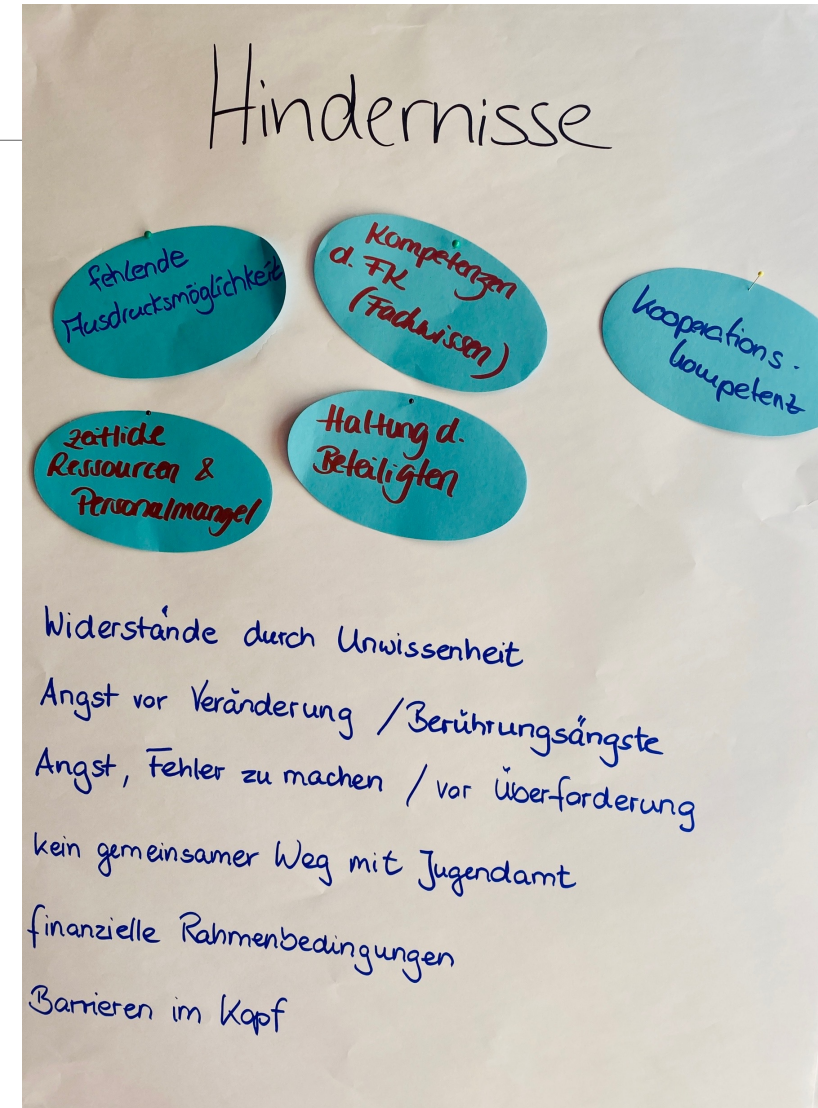 Hindernisse
fehlende
Ausdrucksmöglichkeit
Kompetenzen
d. FK
(Fachwissen)
Kooperations-
kompetenz
zeitliche
Ressourcen &
Personalmangel
Haltung d.
Beteiligten
Widerstände durch Unwissenheit
Angst vor Veränderung / Berührungsängste
Angst, Fehler zu machen / vor Überforderung
kein gemeinsamer Weg mit Jugendamt
finanzielle Rahmenbedingungen
Barrieren im Kopf